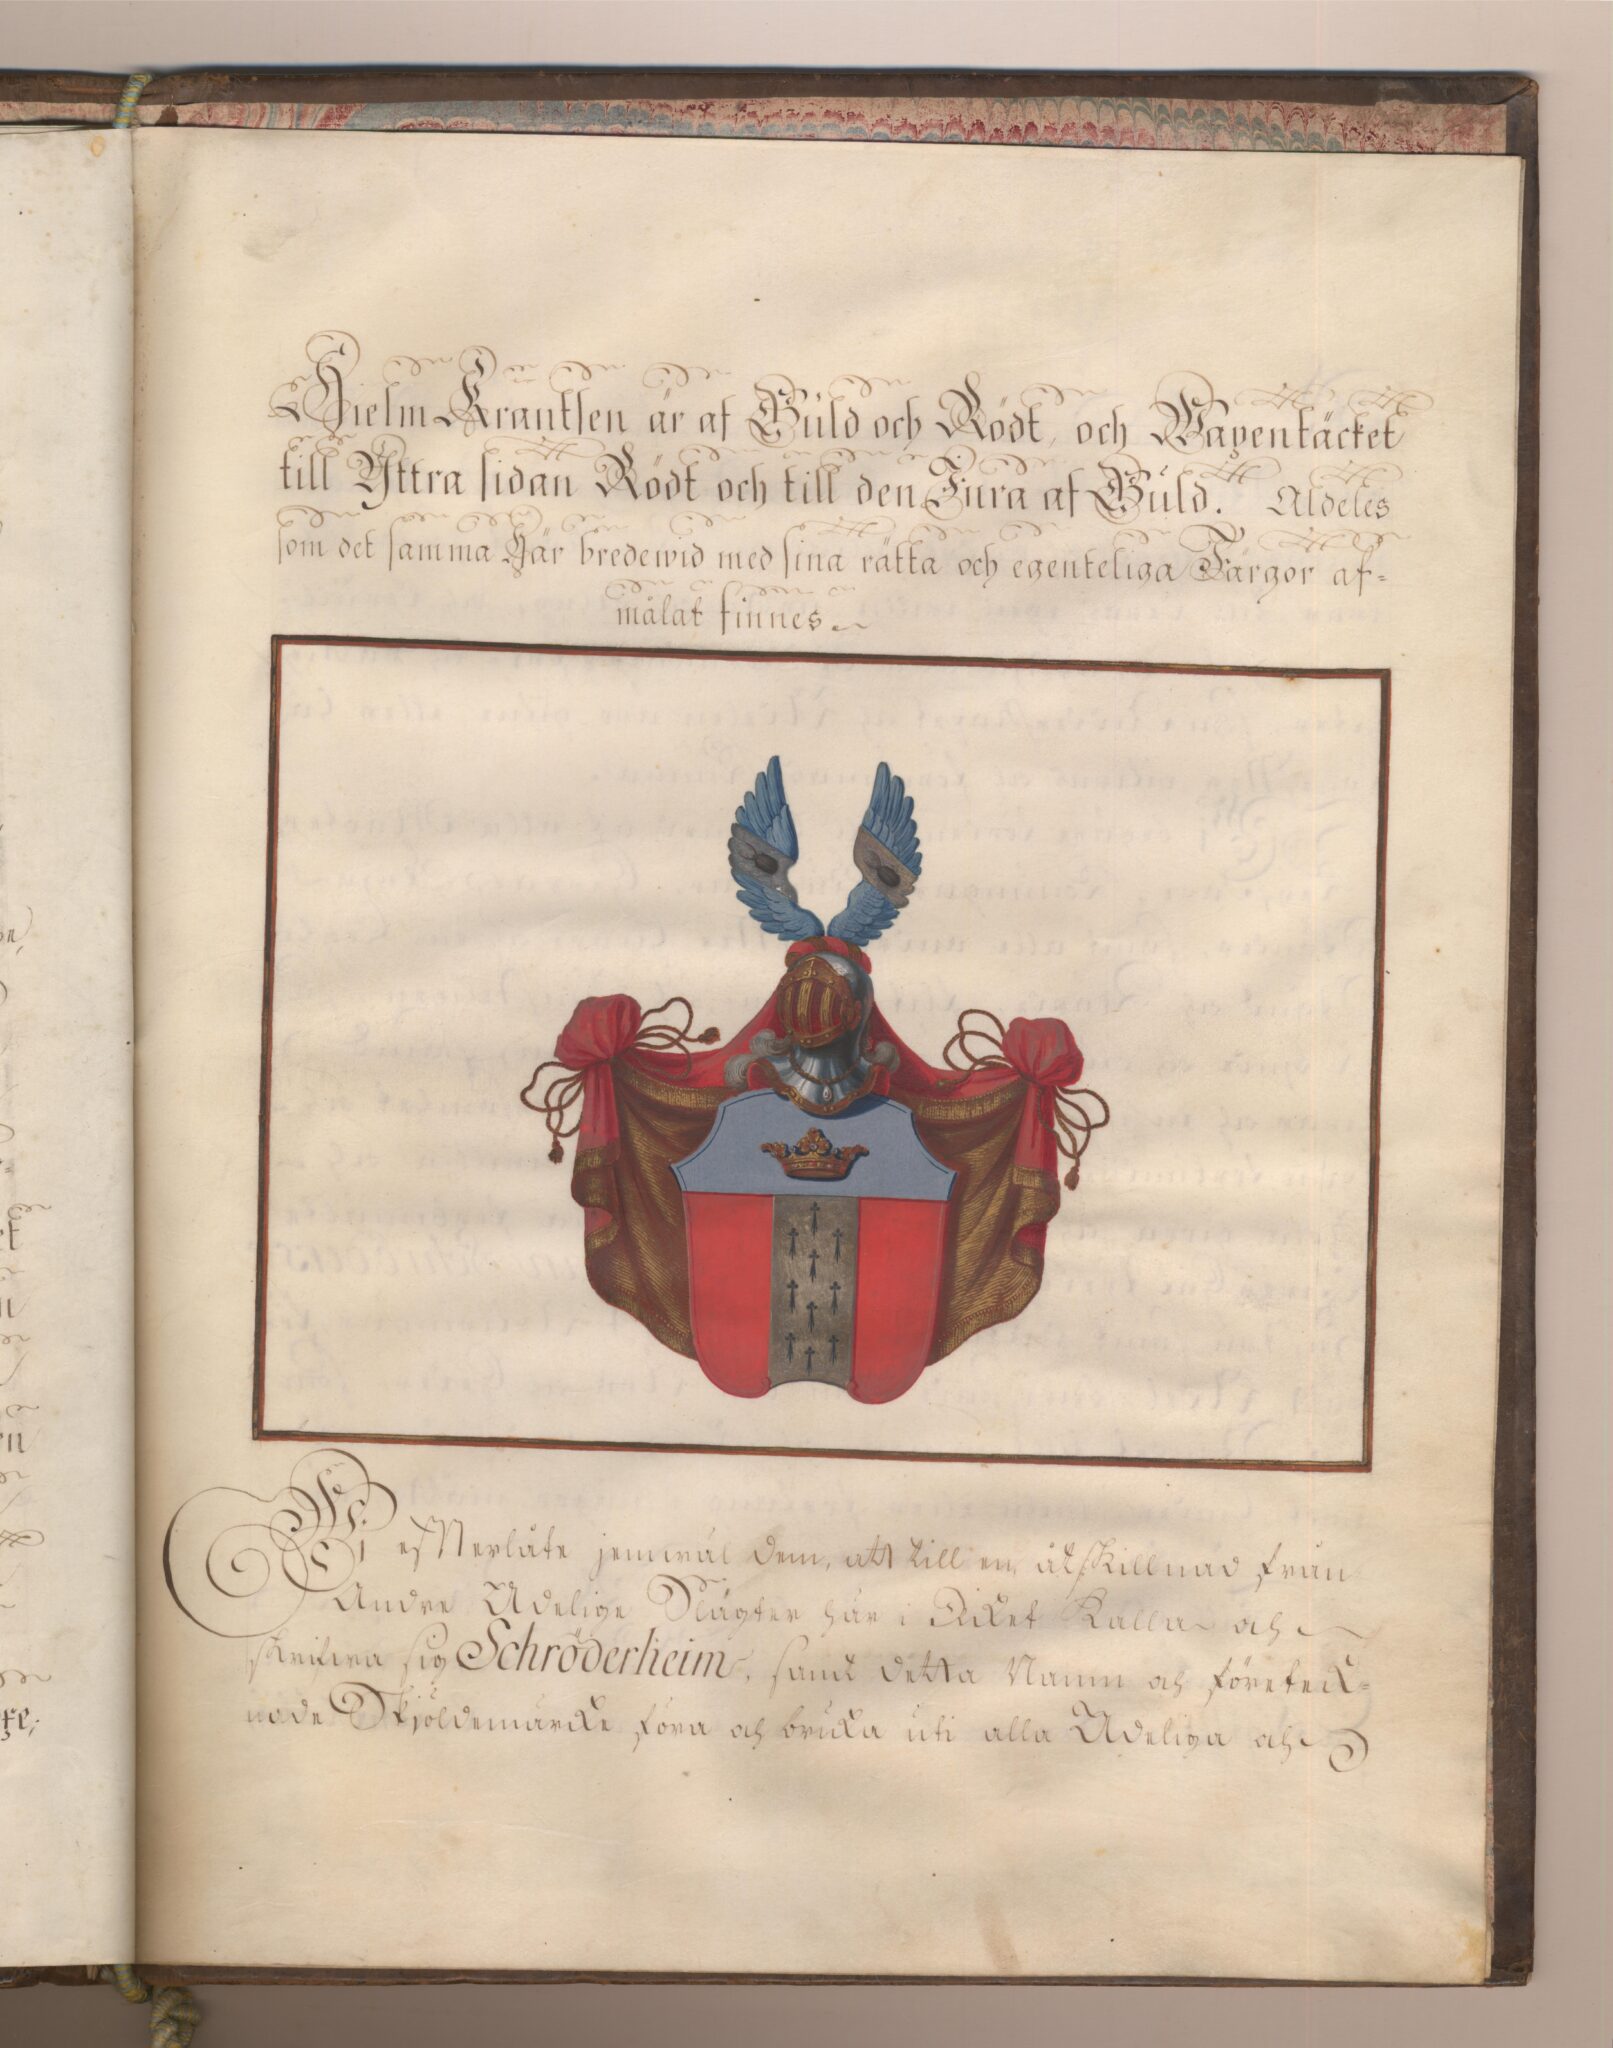 Hielm Kräntsen är af Güld och Rödt, och Wapentäcket
till Yttra sidan Rödt och till den Inra af Güld. Aldeles
som det samma här bredewid med sina rätta och egenteliga Färgor af=
målat finnes.
Wi efterlåte jemwäl dem, att till en åtskillnad från
Andre Adelige Slägter här i Riket Kalla och
skrifwa sig Schröderheim, samt detta Namn och företeck=
nade Skjöldemärcke föra och bruka uti alla Adeliga och